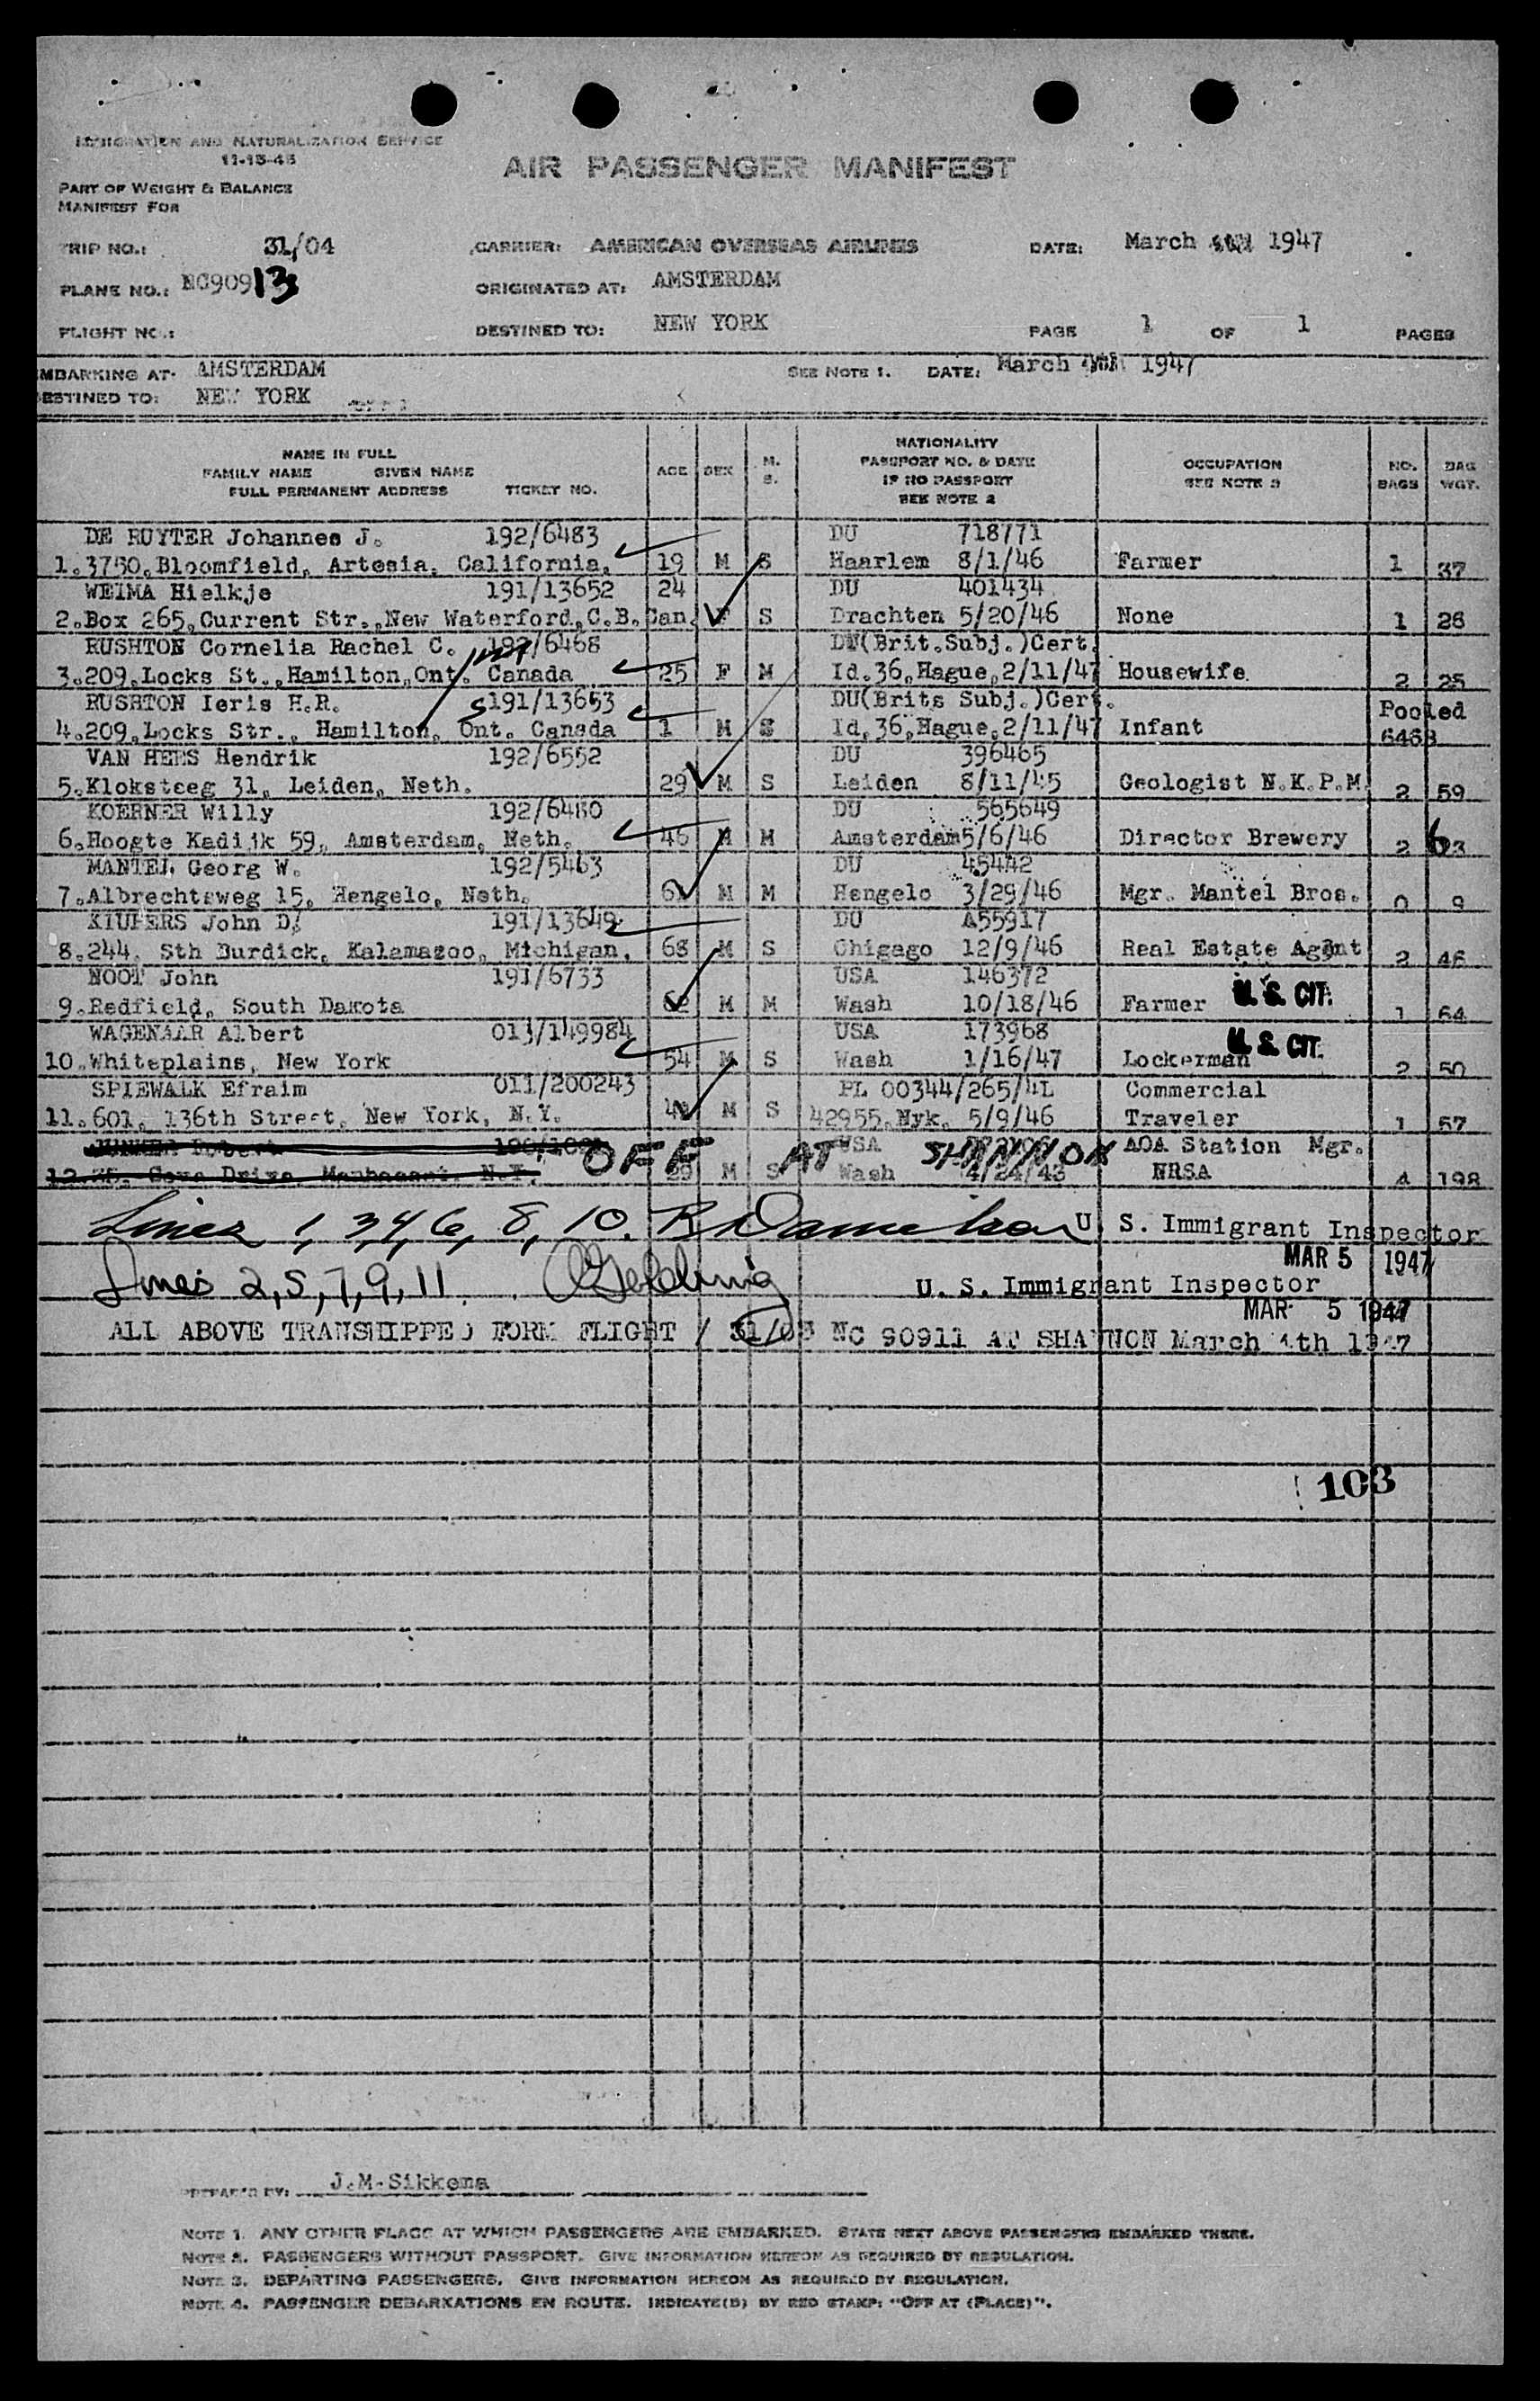 IMMIGRATION AND NATURALIZATION SERVICE
11-15-45
AIR PASSENGER MANIFEST
PART OF WEIGHT & BALANCE
MANIFEST FOR
TRIP NO.: 31/04 CARRIER: AMERICAN OVERSEAS AIRLINES DATE: March 1947
PLANE NO.: NC90913 ORIGINATED AT: AMSTERDAM
FLIGHT NO.: DESTINED TO: NEW YORK PAGE 1 OF 1 PAGES
EMBARKING AT: AMSTERDAM SEE NOTE 1. DATE: March 1947
DESTINED TO: NEW YORK
NAME IN FULL
FAMILY NAME GIVEN NAME
FULL PERMANENT ADDRESS TICKET NO. AGE SEX M. S. NATIONALITY PASSPORT NO. & DATE IF NO PASSPORT SEE NOTE 2 OCCUPATION SEE NOTE 3 NO. BAGS BAG WGT.
DE RUYTER Johannes J. 192/6483 DU 718771
1.3750,Bloomfield, Artesia, California. 19 M S Haarlem 8/1/46 Farmer 1 37
WEIMA Hielkje 191/13652 24 DU 401434
2.Box 265,Current Str.,New Waterford,C.B.Can. F S Drachten 5/20/46 None 1 26
RUSHTON Cornelia Rachel C. 192/6468 DU(Brit.Subj.)Cert.
3.209,Locks St.,Hamilton,Ont. Canada 25 F M Id.36,Hague,2/11/47 Housewife 2 25
RUSHTON Ieris H.R. 191/13653 DU(Brits Subj.)Cert. Pooled
4.209,Locks Str., Hamilton, Ont. Canada 1 M S Id.36,Hague,2/11/47 Infant 6468
VAN HEES Hendrik 192/6552 DU 396465
5.Kloksteeg 31, Leiden, Neth. 29 M S Leiden 8/11/45 Geologist N.K.P.M. 2 59
KOERNER Willy 192/6480 DU 565649
6.Hoogte Kadijk 59, Amsterdam, Neth. 46 M M Amsterdam5/6/46 Director Brewery 2 63
MANTEL Georg W. 192/5463 DU 45442
7.Albrechtsweg 15, Hengelo, Neth. M M Hengelo 3/29/46 Mgr. Mantel Bros. 0 9
KIUPERS John D. 191/13649 DU A55917
8.244. Sth Burdick, Kalamazoo, Michigan. 68 M S Chigago 12/9/46 Real Estate Agent 2 46
NOOT John 191/6733 USA 146372
9.Redfield, South Dakota 62 M M Wash 10/18/46 Farmer U.S. CIT. 1 64
WAGENAAR Albert 013/149984 USA 173968
10.Whiteplains, New York 54 M S Wash 1/16/47 Lockerman U.S. CIT. 2 50
SPIEWALK Efraim 011/200243 PL 00344/265/4L Commercial
11.601, 136th Street, New York, N.Y. M S 42955.Nyk. 5/9/46 Traveler 1 57
OFF AT SHANNON USA AOA Station Mgr.
12. Cove Drive, Manhasset, N.Y. 29 M S Wash 4/24/43 NRSA 4 198
Lines 1, 3, 4, 6, 8, 10. U. S. Immigrant Inspector
MAR 5 1947
Lines 2, 5, 7, 9, 11. U. S. Immigrant Inspector
MAR 5 1947
ALL ABOVE TRANSHIPPED FORM FLIGHT / 31/03 NC 90911 AT SHANNON March 4th 1947
103
PREPAR'D BY: J.M.Sikkema
NOTE 1. ANY OTHER PLACE AT WHICH PASSENGERS ARE EMBARKED. STATE NEXT ABOVE PASSENGERS EMBARKED THERE.
NOTE 2. PASSENGERS WITHOUT PASSPORT. GIVE INFORMATION HEREON AS REQUIRED BY REGULATION.
NOTE 3. DEPARTING PASSENGERS. GIVE INFORMATION HEREON AS REQUIRED BY REGULATION.
NOTE 4. PASSENGER DEBARKATIONS EN ROUTE. INDICATE(D) BY RED STAMP: "OFF AT (PLACE)".